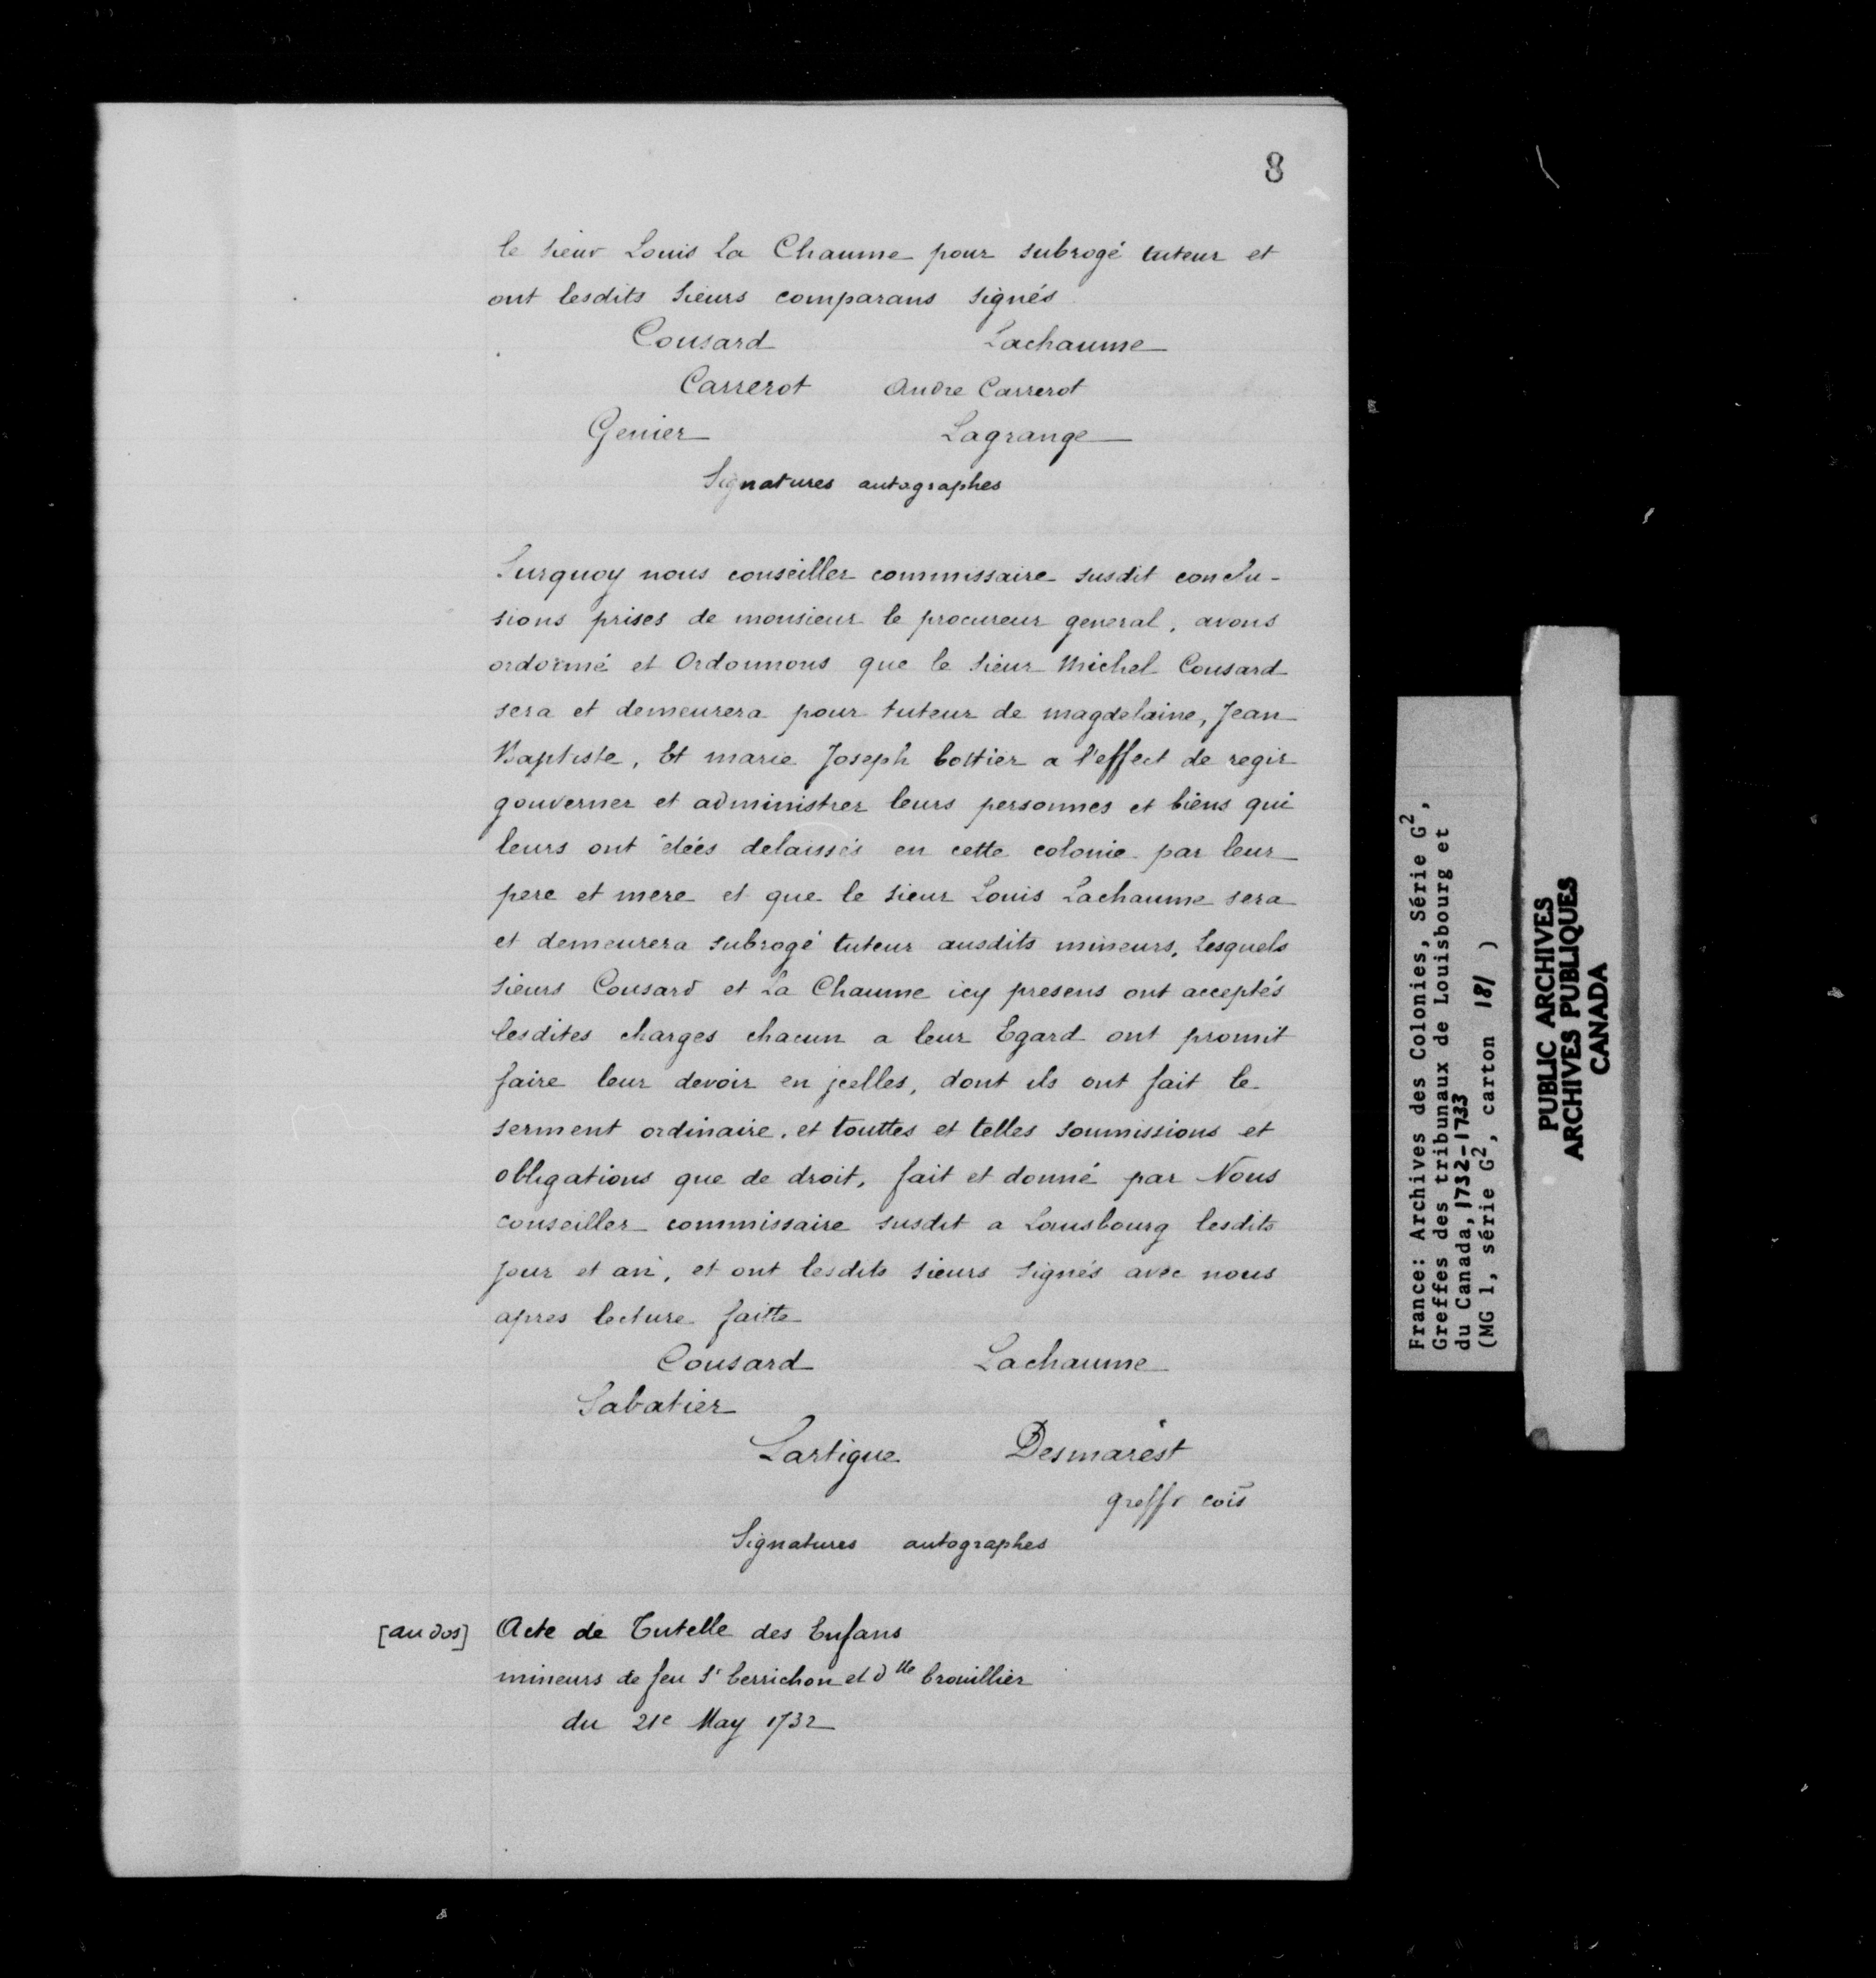 8
le sieur Louis La Chaume pour subrogé tuteur et
ont lesdits sieurs comparans signés
Cousard Lachaume
Carrerot Andre Carrerot
Genier Lagrange
Signatures autographes
Surquoy nous conseiller commissaire susdit conclu-
sions prises de monsieur le procureur general, avons
ordonné et Ordonnons que le sieur Michel Cousard
sera et demeurera pour tuteur de magdelaine, Jean
Baptiste, Et marie Joseph bottier a l'effect de regir
gouverner et administrer leurs personnes et biens qui
leurs ont étéés delaissés en cette colonie par leur
pere et mere et que le sieur Louis Lachaume sera
et demeurera subrogé tuteur ausdits mineurs, Lesquels
sieurs Cousard et La Chaume icy presens ont acceptés
lesdites charges chacun a leur Egard ont promit
faire leur devoir en jcelles, dont ils ont fait le
serment ordinaire, et touttes et telles soumissions et
obligations que de droit, fait et donné par Nous
conseiller commissaire susdit a Louisbourg lesdits
jour et an, et ont lesdits sieurs signés avec nous
apres lecture faitte
Cousard Lachaume
Sabatier
Lartigue Desmarest
greffr cois
Signatures autographes
[au dos] Acte de Tutelle des Enfans
mineurs de feu Sr berrichon et dlle brouillier
du 21e May 1732
France: Archives des Colonies, Série G2,
Greffes des tribunaux de Louisbourg et
du Canada, 1732-1733
(MG 1, série G2, carton 181 )
PUBLIC ARCHIVES
ARCHIVES PUBLIQUES
CANADA